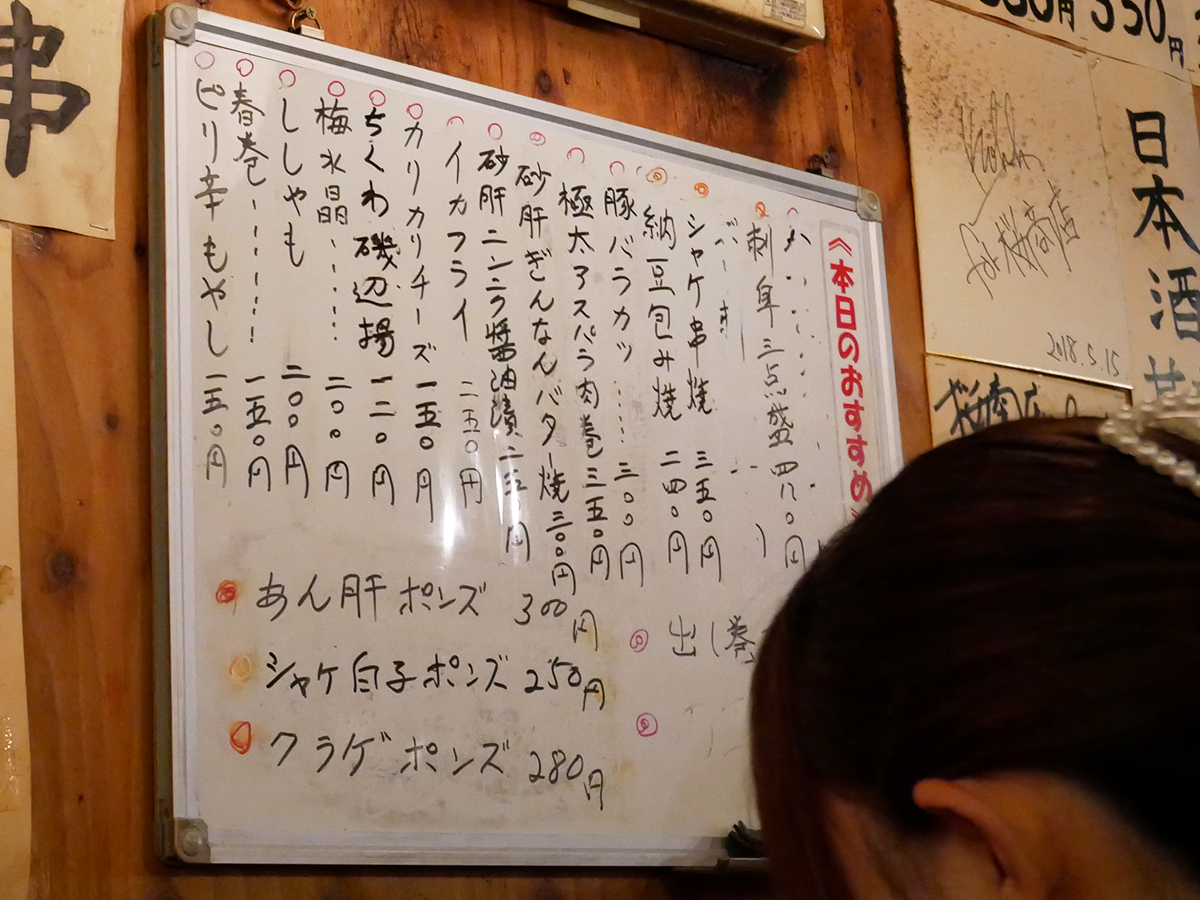 《本日のおすすめ》
刺身三点盛 四八〇円
シャケ串焼 三五〇円
納豆包み焼 二四〇円
豚バラカツ…… 三〇〇円
極太アスパラ肉巻 三五〇円
砂肝ぎんなんバター焼 三〇〇円
砂肝ニンニク醤油漬 二五〇円
イカフライ 二五〇円
カリカリチーズ 一五〇円
ちくわ磯辺揚 一二〇円
梅水晶…… 二〇〇円
ししゃも 二〇〇円
春巻き…… 一五〇円
ピリ辛もやし 一五〇円
あん肝ポンズ 300円
シャケ白子ポンズ 250円
クラゲポンズ 280円
出し巻
串
550円
日本酒
for 桜商店
2018.5.15
桜商店